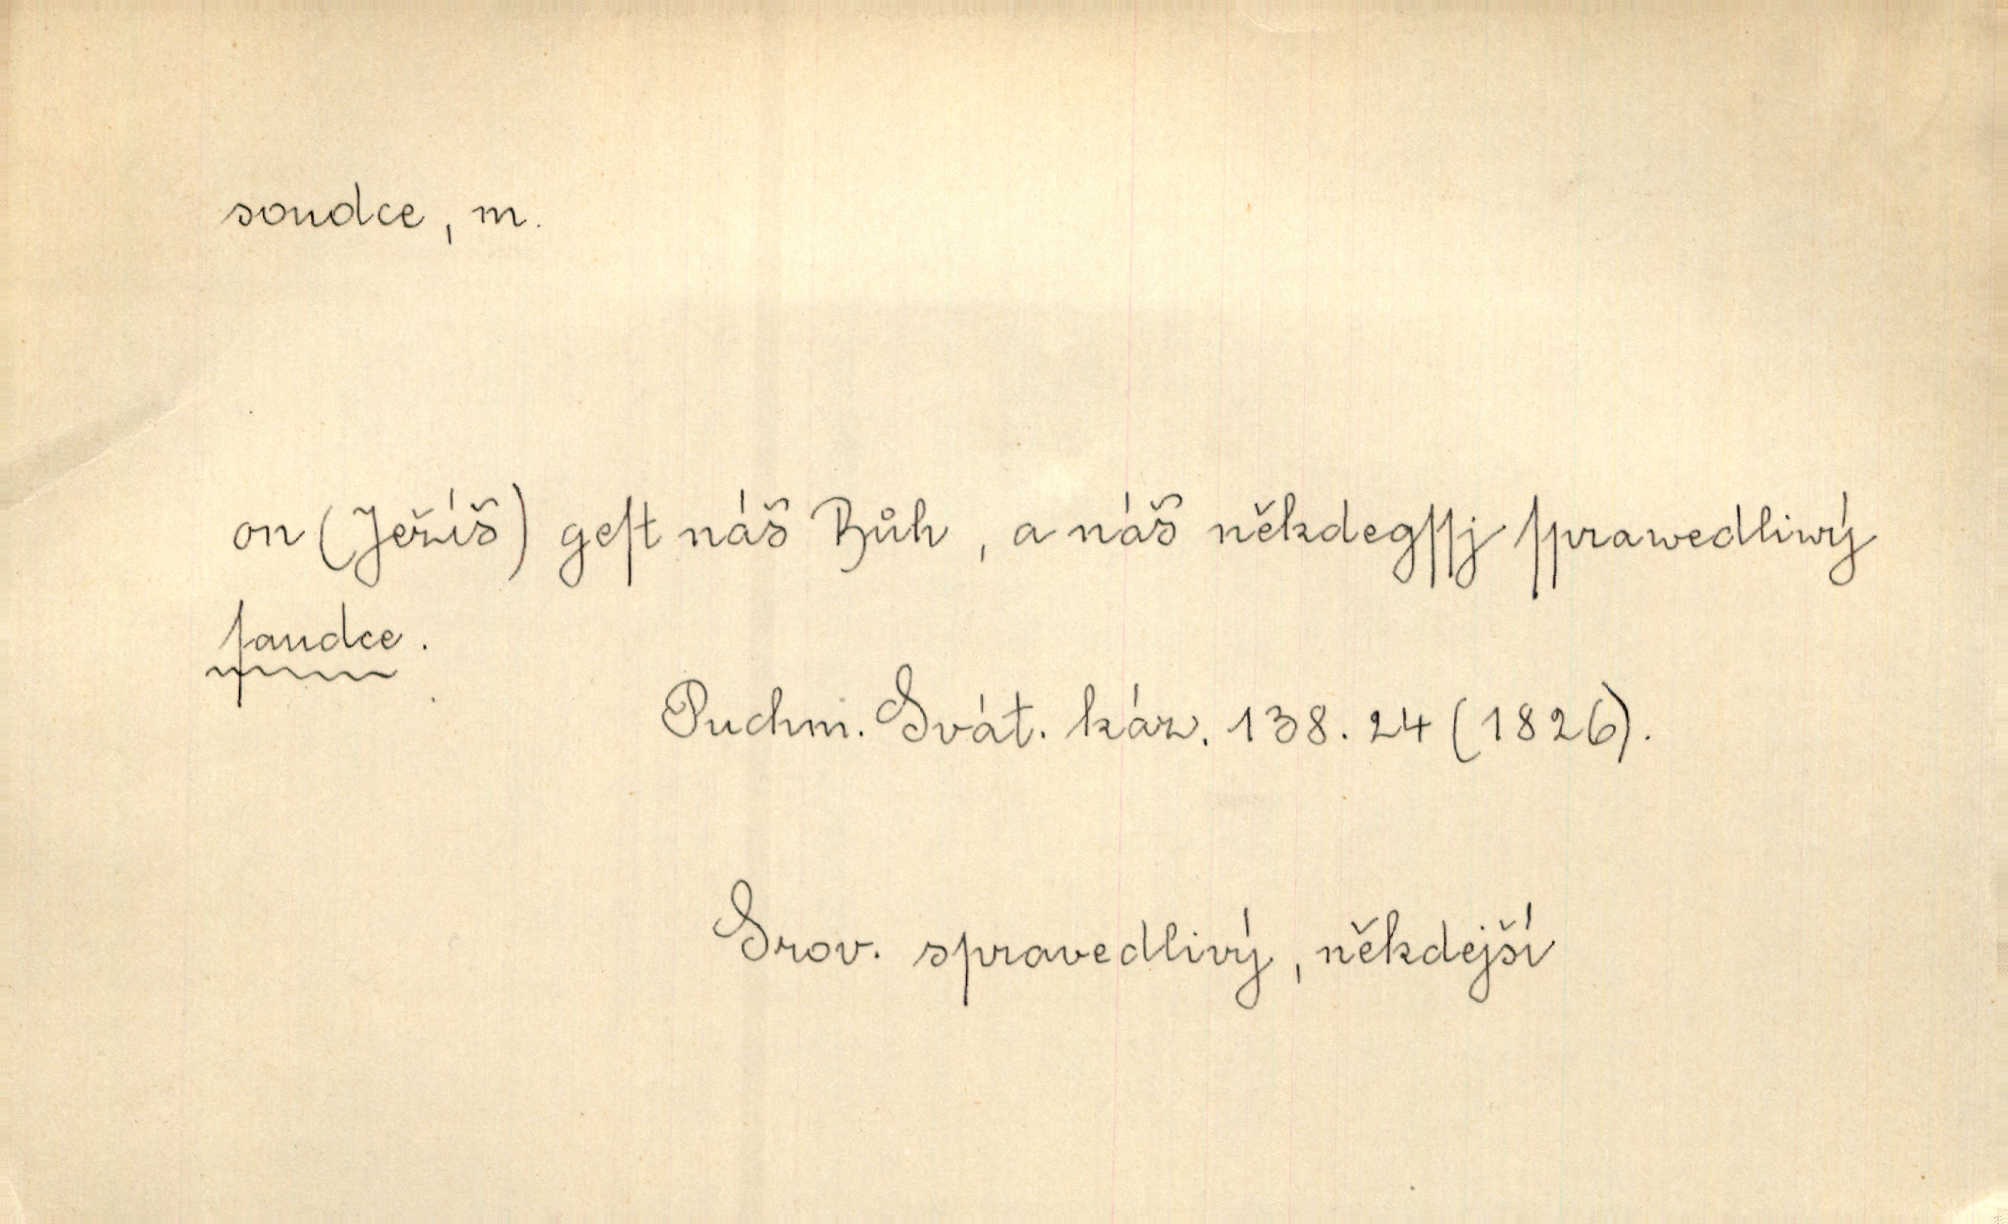 soudce, m.
on (Ježíš) geſt náš Bůh, a náš někdegſſj ſprawedliwý
ſaudce.
Puchm. Svát. káz. 138. 24 (1826).
Srov. spravedlivý, někdejší